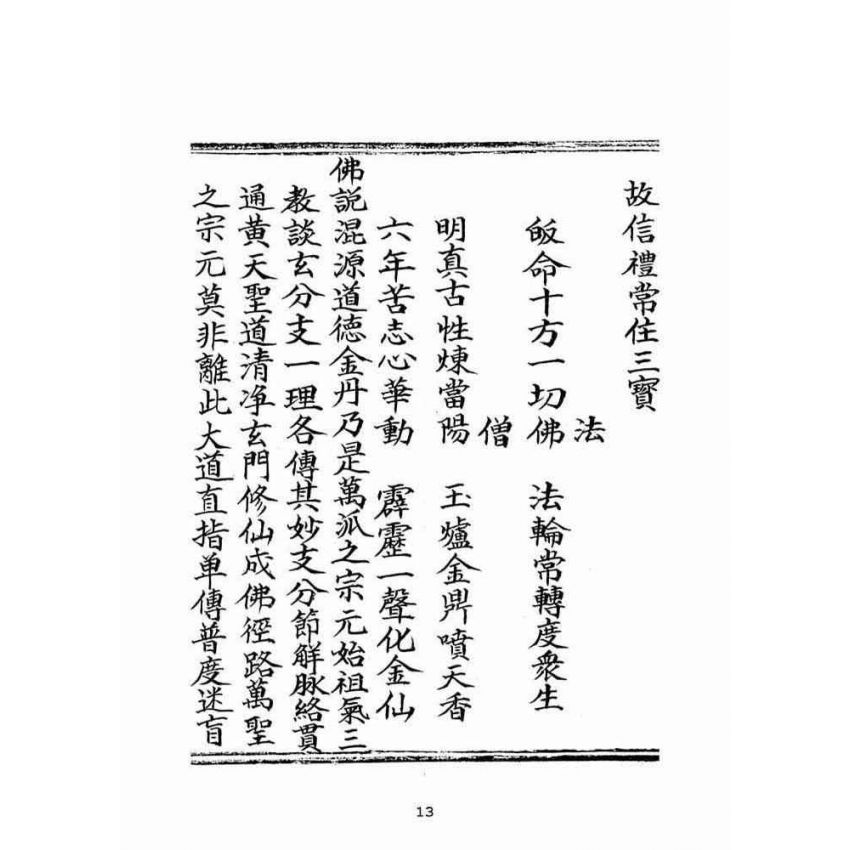 故信禮常住三寶
法
皈命十方一切佛 法輪常轉度衆生
僧
明真古性煉當陽 玉爐金鼎噴天香
六年苦志心華動 霹靂一聲化金仙
佛説混源道德金丹乃是萬派之宗元始祖氣三
教談玄分支一理各傳其妙支分節解脉絡貫
通黄天聖道清净玄門修仙成佛徑路萬聖
之宗元莫非離此大道直指单傳普度迷盲
13